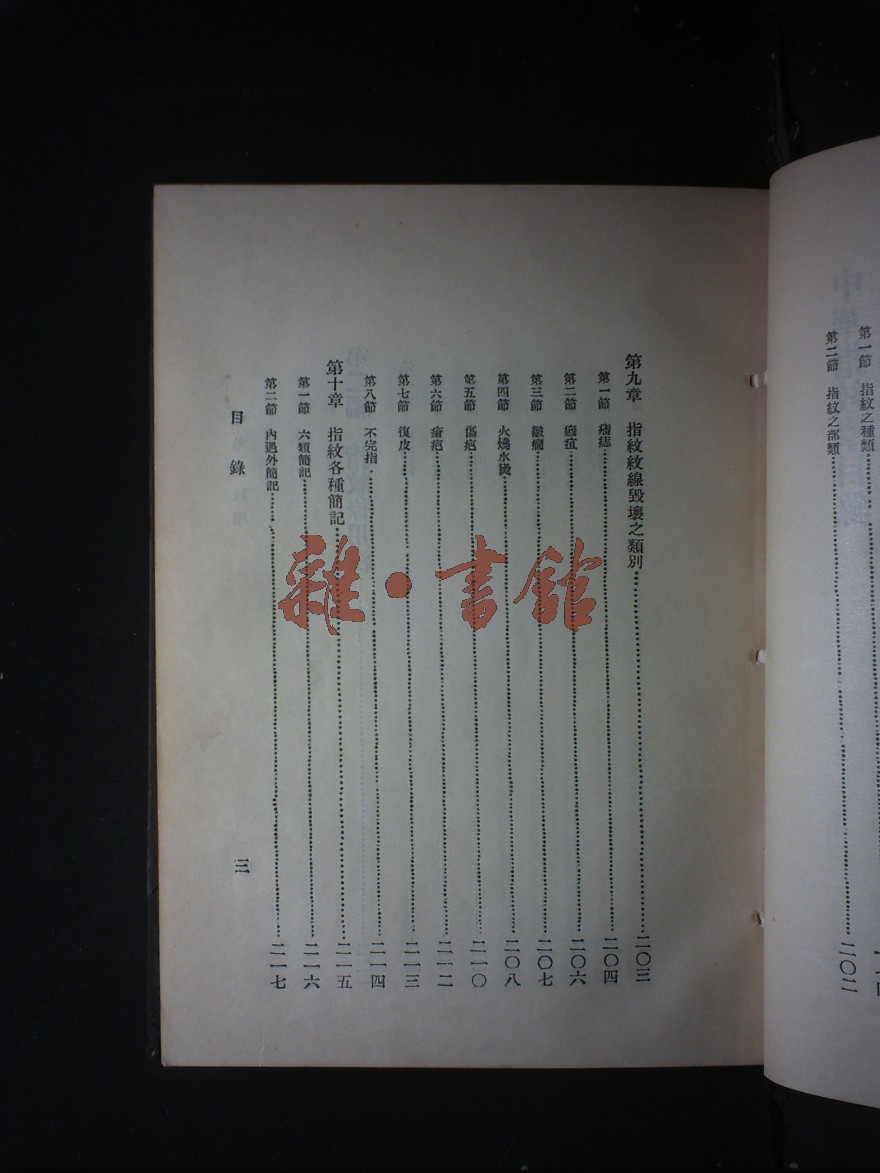 第一節 指紋之種類
第二節 指紋之部類 二〇二
第九章 指紋紋線毀壞之類別 二〇三
第一節 二〇四
第二節 二〇六
第三節 二〇七
第四節 火燒水燙 二〇八
第五節 傷疤 二一〇
第六節 瘡疤 二一二
第七節 復皮 二一三
第八節 不完指 二一四
第十章 指紋各種簡記 二一五
第一節 六類簡記 二一六
第二節 內過外簡記 二一七
目錄 三
雜·書館